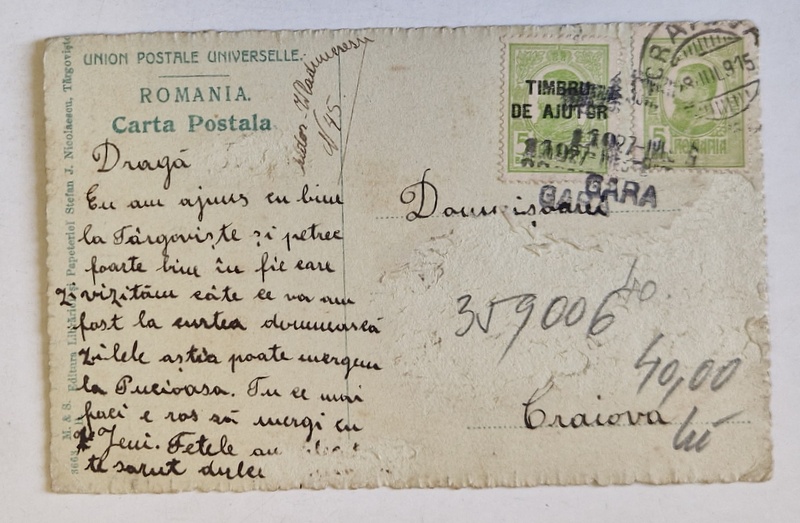 UNION POSTALE UNIVERSELLE.
ROMANIA.
Carta Postala
Dragă
Eu am ajuns cu bine
la Târgoviște și petrec
foarte bine în fie care
zi vizităm câte ce va am
fost la curtea domnească
zilele aștia poate mergem
la Pucioasa. Tu ce mai
faci e ros să mergi cu
Jeni. Fetele au
te sarut dulce
TIMBRU
DE AJUTOR
5
5
ROMANIA
CRAIOVA
GARA
GARA
Domnișoarei
359006
40.
40,00
lei
Craiova
3663 M. & S. Editura Librăriei și Papeteriei Stefan J. Nicolaescu, Târgoviște